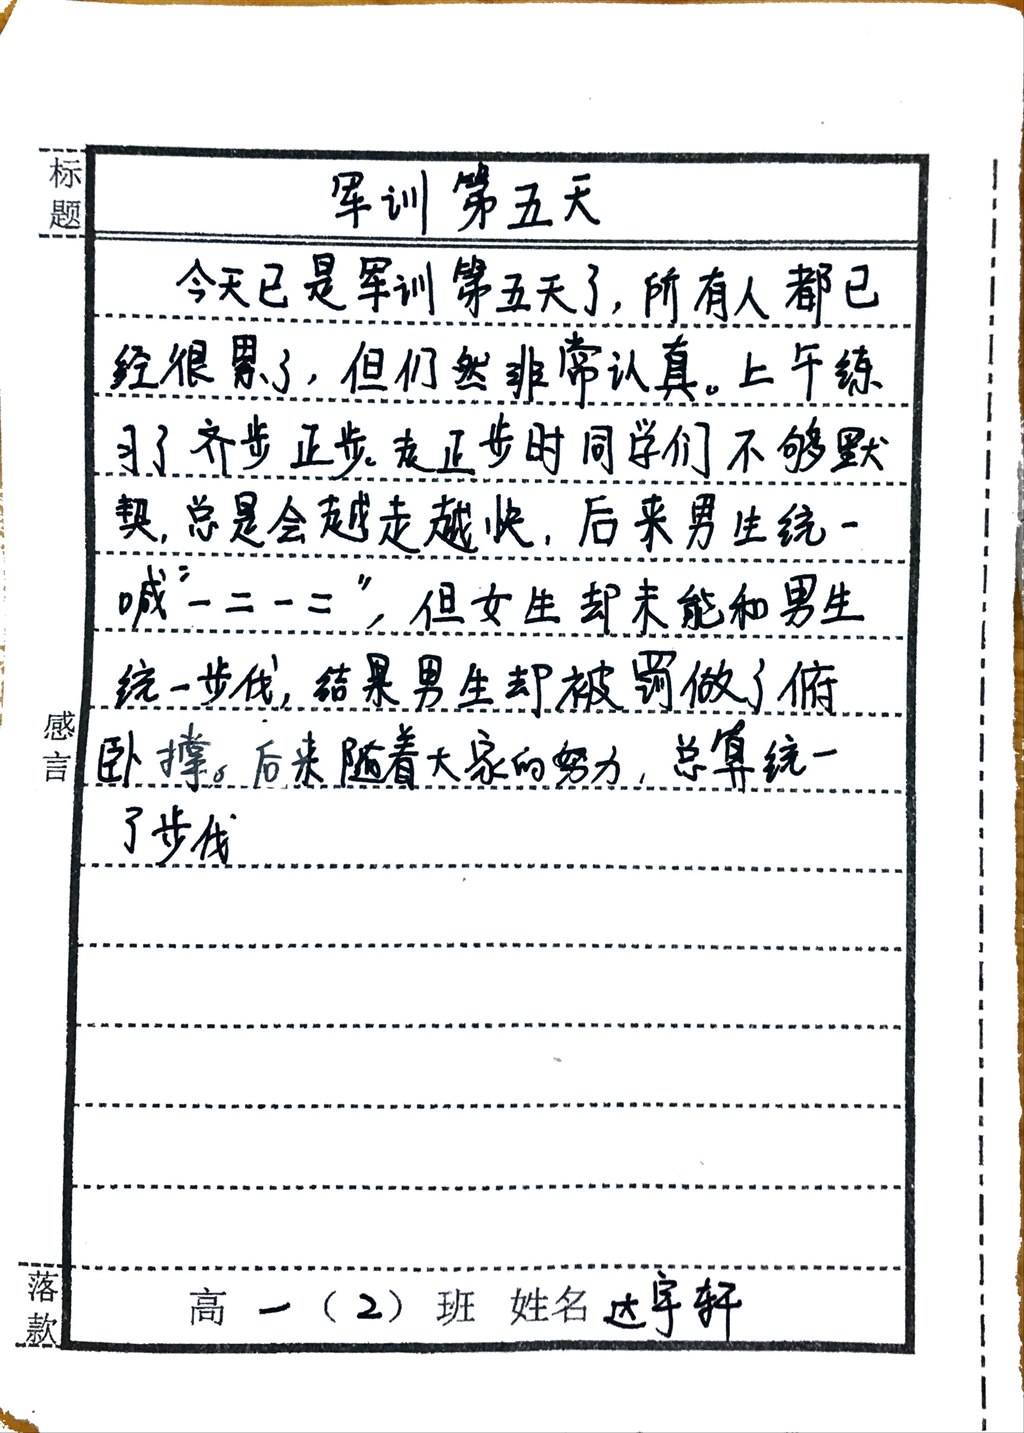 标题
军训第五天
今天已是军训第五天了，所有人都已
经很累了，但们然非常认真。上午练
习了齐步正步。走正步时同学们不够默
契，总是会越走越快，后来男生统一
喊“一二一二”，但女生却未能和男生
统一步伐，结果男生却被罚做了俯
卧撑。后来随着大家的努力，总算统一
了步伐
感言
落款
高一（2）班 姓名 达宇轩